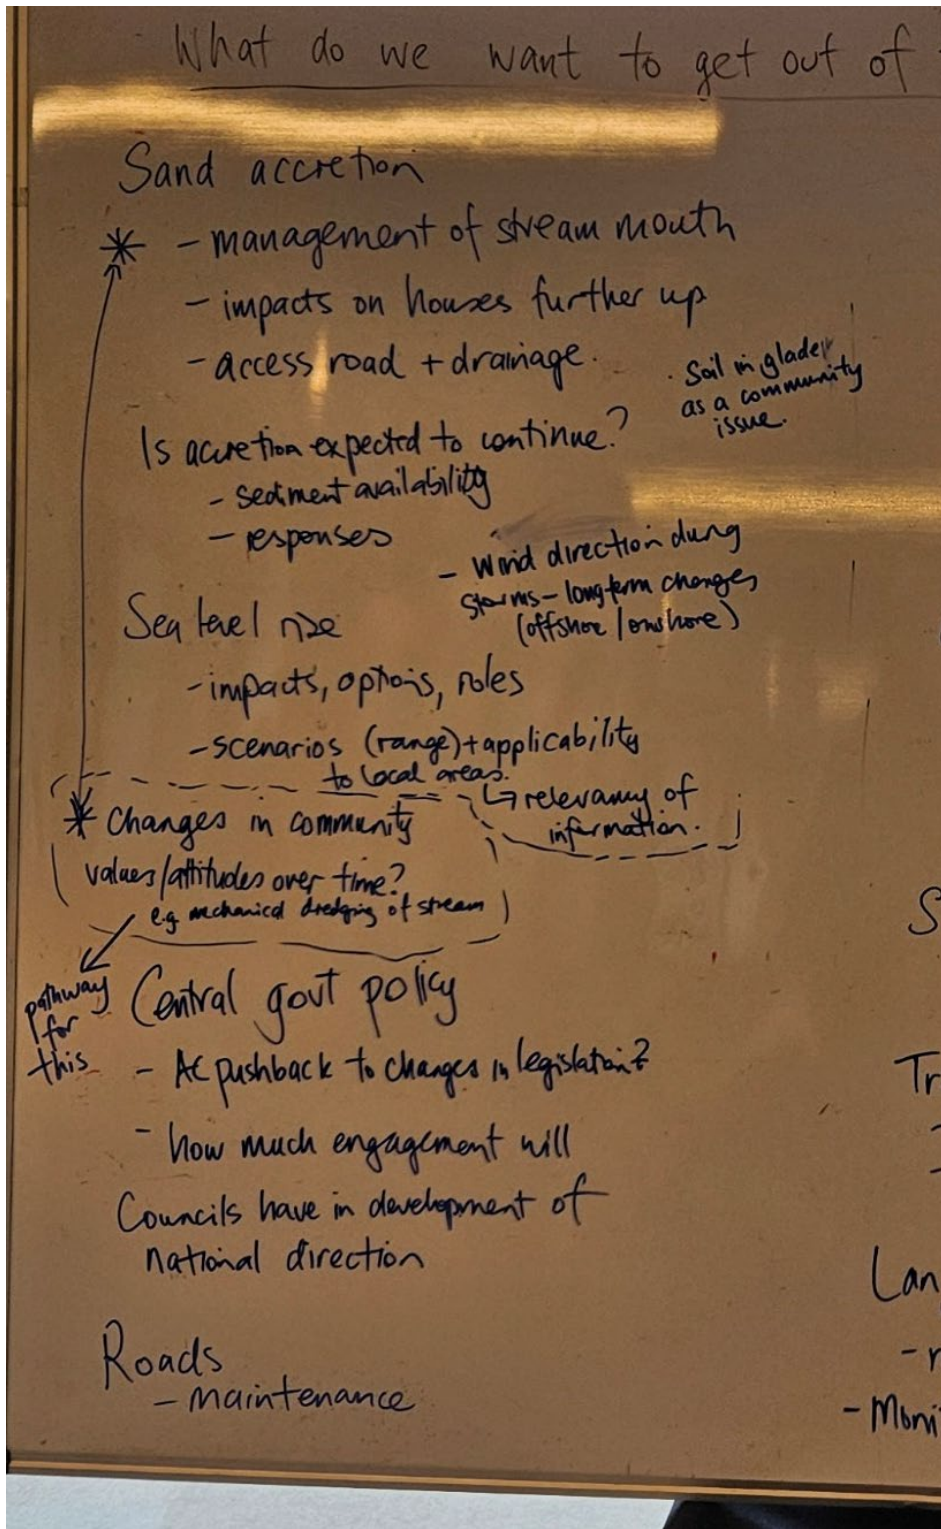 What do we want to get out of
Sand accretion
* - management of stream mouth
- impacts on houses further up
- access road + drainage.
. Soil in glade
as a community
issue.
Is accretion expected to continue?
- sediment availability
- responses
- Wind direction durng
storms - long-term changes
(offshore / onshore)
Sea level rise
- impacts, options, roles
- scenarios (range) + applicability
to local areas.
↳ relevancy of
information.
* Changes in community
values/attitudes over time?
e.g mechanical dredging of stream
pathway
for
this
Central govt policy
- AC pushback to changes in legislation?
- how much engagement will
Councils have in development of
national direction
Roads
- maintenance
S
Tr
-
-
Lan
- r
- Moni